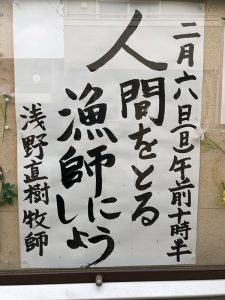 二月六日(日)午前十時半
人間をとる
漁師にしよう
浅野直樹牧師